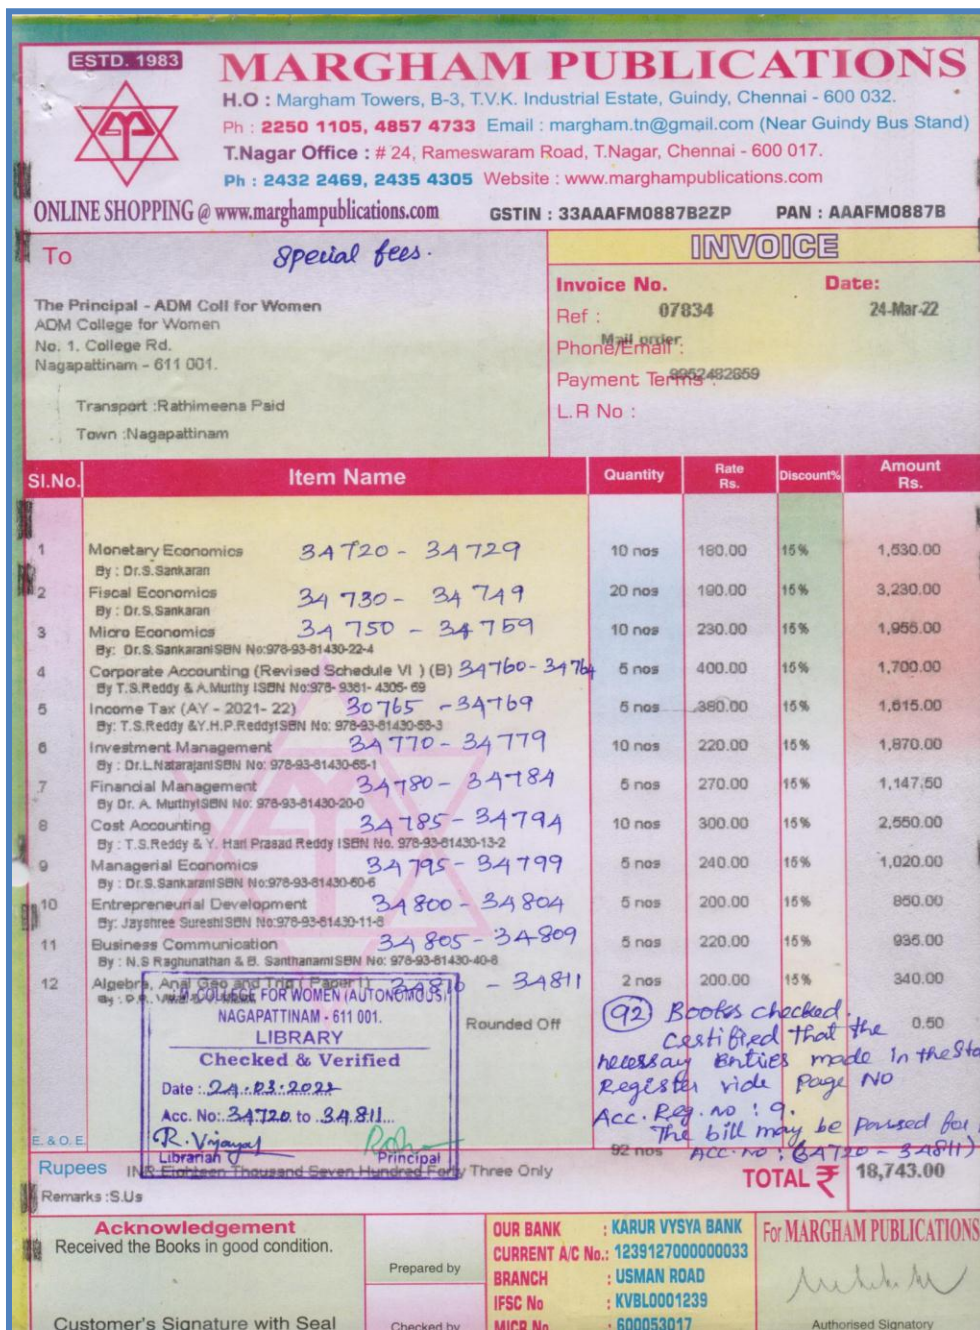 ESTD. 1983
MARGHAM PUBLICATIONS
H.O : Margham Towers, B-3, T.V.K. Industrial Estate, Guindy, Chennai - 600 032.
Ph : 2250 1105, 4857 4733 Email : margham.tn@gmail.com (Near Guindy Bus Stand)
T.Nagar Office : # 24, Rameswaram Road, T.Nagar, Chennai - 600 017.
Ph : 2432 2469, 2435 4305 Website : www.marghampublications.com
ONLINE SHOPPING @ www.marghampublications.com GSTIN : 33AAAFM0887B2ZP PAN : AAAFM0887B
To
Special fees.
The Principal - ADM Coll for Women
ADM College for Women
No. 1. College Rd.
Nagapattinam - 611 001.
Transport :Rathimeena Paid
Town :Nagapattinam
INVOICE
Invoice No. Date:
Ref : 07834 24-Mar-22
Mail order
Phone/Email :
Payment Terms : 9952482659
L.R No :
Sl.No. Item Name Quantity Rate Rs. Discount% Amount Rs.
1 Monetary Economics 34720 - 34729 10 nos 180.00 15% 1,530.00
By : Dr.S.Sankaran
2 Fiscal Economics 34730 - 34749 20 nos 190.00 15% 3,230.00
By : Dr.S.Sankaran
3 Micro Economics 34750 - 34759 10 nos 230.00 15% 1,955.00
By: Dr.S.SankaranISBN No:978-93-81430-22-4
4 Corporate Accounting (Revised Schedule VI ) (B) 34760 - 34764 5 nos 400.00 15% 1,700.00
By T.S.Reddy & A.Murthy ISBN No:978- 9381- 4305- 69
5 Income Tax (AY - 2021- 22) 30765 - 34769 5 nos 380.00 15% 1,615.00
By: T.S.Reddy &Y.H.P.ReddyISBN No: 978-93-81430-58-3
6 Investment Management 34770 - 34779 10 nos 220.00 15% 1,870.00
By : Dr.L.NatarajanISBN No: 978-93-81430-65-1
7 Financial Management 34780 - 34784 5 nos 270.00 15% 1,147.50
By Dr. A. MurthyISBN No: 978-93-81430-20-0
8 Cost Accounting 34785 - 34794 10 nos 300.00 15% 2,550.00
By : T.S.Reddy & Y. Hari Prasad Reddy ISBN No. 978-93-81430-13-2
9 Managerial Economics 34795 - 34799 5 nos 240.00 15% 1,020.00
By : Dr.S.SankaranISBN No:978-93-81430-60-6
10 Entrepreneurial Development 34800 - 34804 5 nos 200.00 15% 850.00
By: Jayshree SureshISBN No:978-93-81430-11-8
11 Business Communication 34805 - 34809 5 nos 220.00 15% 935.00
By : N.S Raghunathan & B. SanthanamISBN No: 978-93-81430-40-8
12 Algebra, Anal Geo and Trig ( Paper I) 34810 - 34811 2 nos 200.00 15% 340.00
COLLEGE FOR WOMEN (AUTONOMOUS)
NAGAPATTINAM - 611 001.
LIBRARY
Checked & Verified
Date : 24.03.2022
Acc. No: 34720 to 34811
R. Vijayal
Librarian Principal
Rounded Off 0.50
92 Books checked.
certified that the
necessay enties made in the Sto
Register vide page NO
Acc. Reg. no : 9.
The bill may be passed for
Acc. no : (34720 - 34811)
E. & O. E.
92 nos
Rupees INR Eighteen Thousand Seven Hundred Forty Three Only TOTAL ₹ 18,743.00
Remarks :S.Us
Acknowledgement
Received the Books in good condition.
Customer's Signature with Seal
Prepared by
Checked by
OUR BANK : KARUR VYSYA BANK
CURRENT A/C No.: 1239127000000033
BRANCH : USMAN ROAD
IFSC No : KVBL0001239
MICR No : 600053017
For MARGHAM PUBLICATIONS
Authorised Signatory